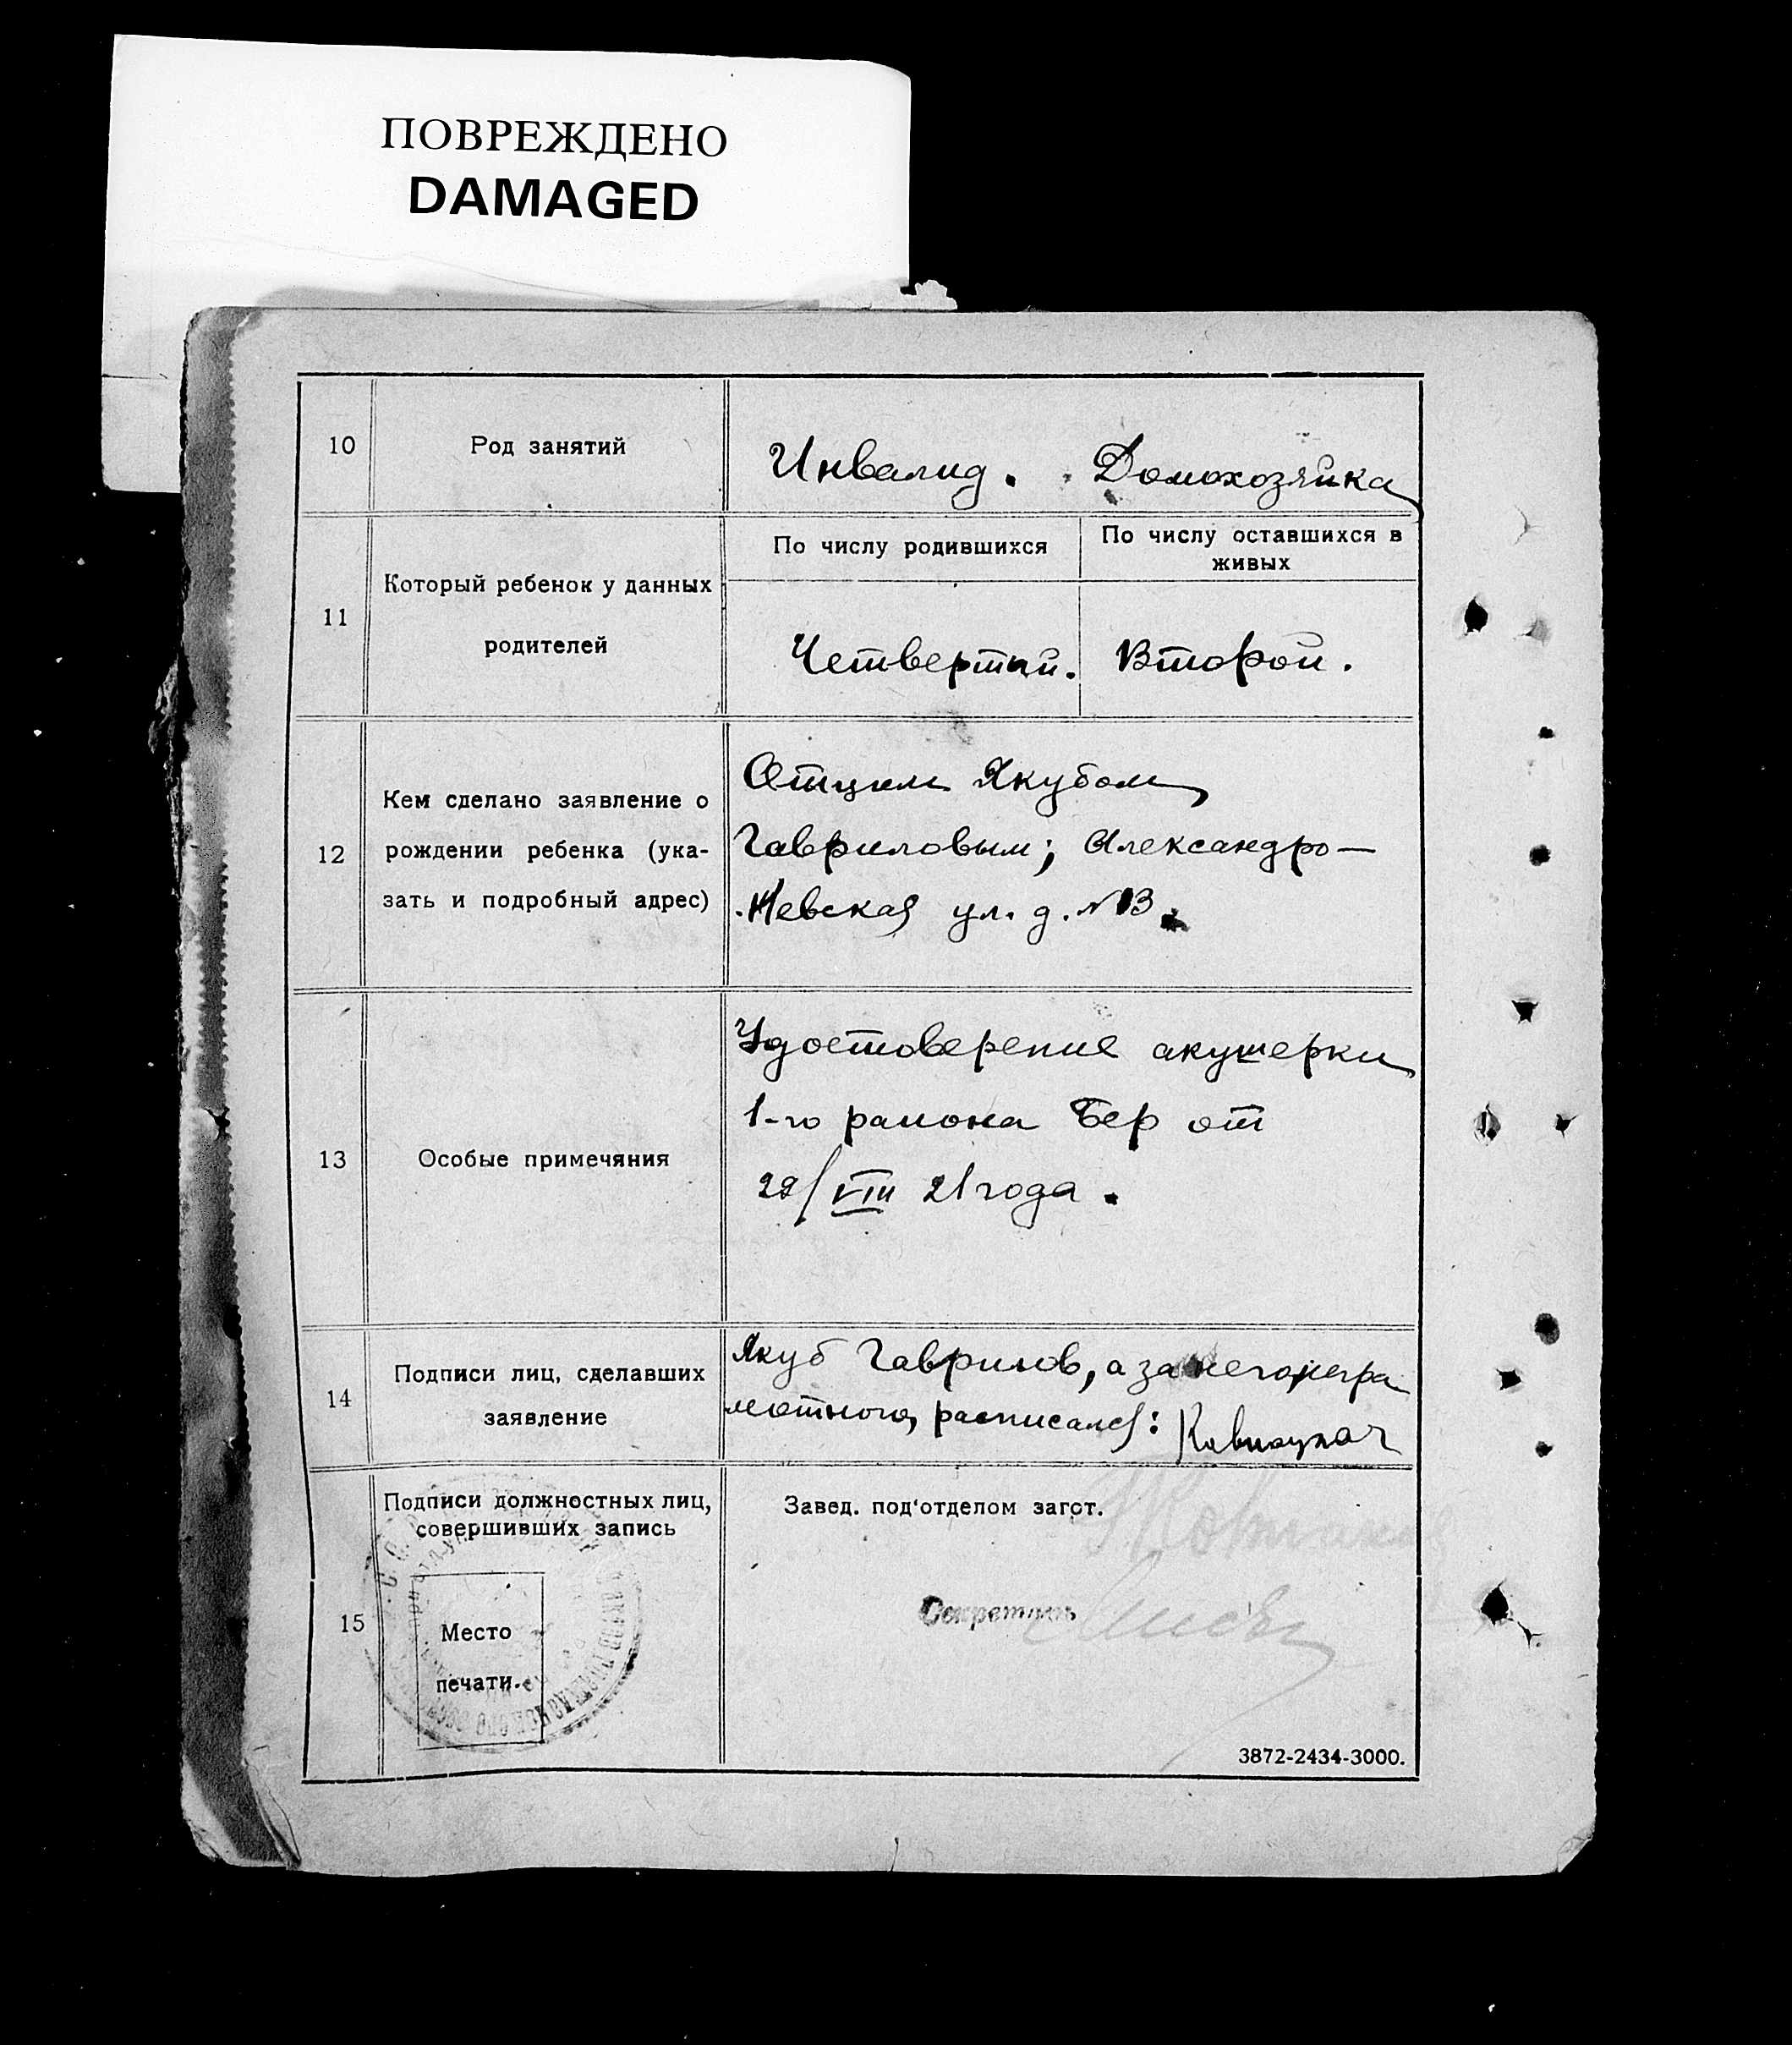 ПОВРЕЖДЕНО
DAMAGED
10
Род занятий
Инвалид. Домохозяйка
11
Который ребенок у данных
родителей
По числу родившихся
По числу оставшихся в
живых
Четвертый.
Второй.
12
Кем сделано заявление о
рождении ребенка (ука-
зать и подробный адрес)
Отцом Якубом
Гавриловым; Александро—
Невская ул. д. №13.
13
Особые примечяния
Удостоверение акушерки
1-го района Бер от
29/VIII 21 года.
14
Подписи лиц, сделавших
заявление
Якуб Гаврилов, а за него, негра
мотного, расписался:
15
Подписи должностных лиц,
совершивших запись
Место
печати.
Завед. под'отделом загот.
Секретарь
3872-2434-3000.